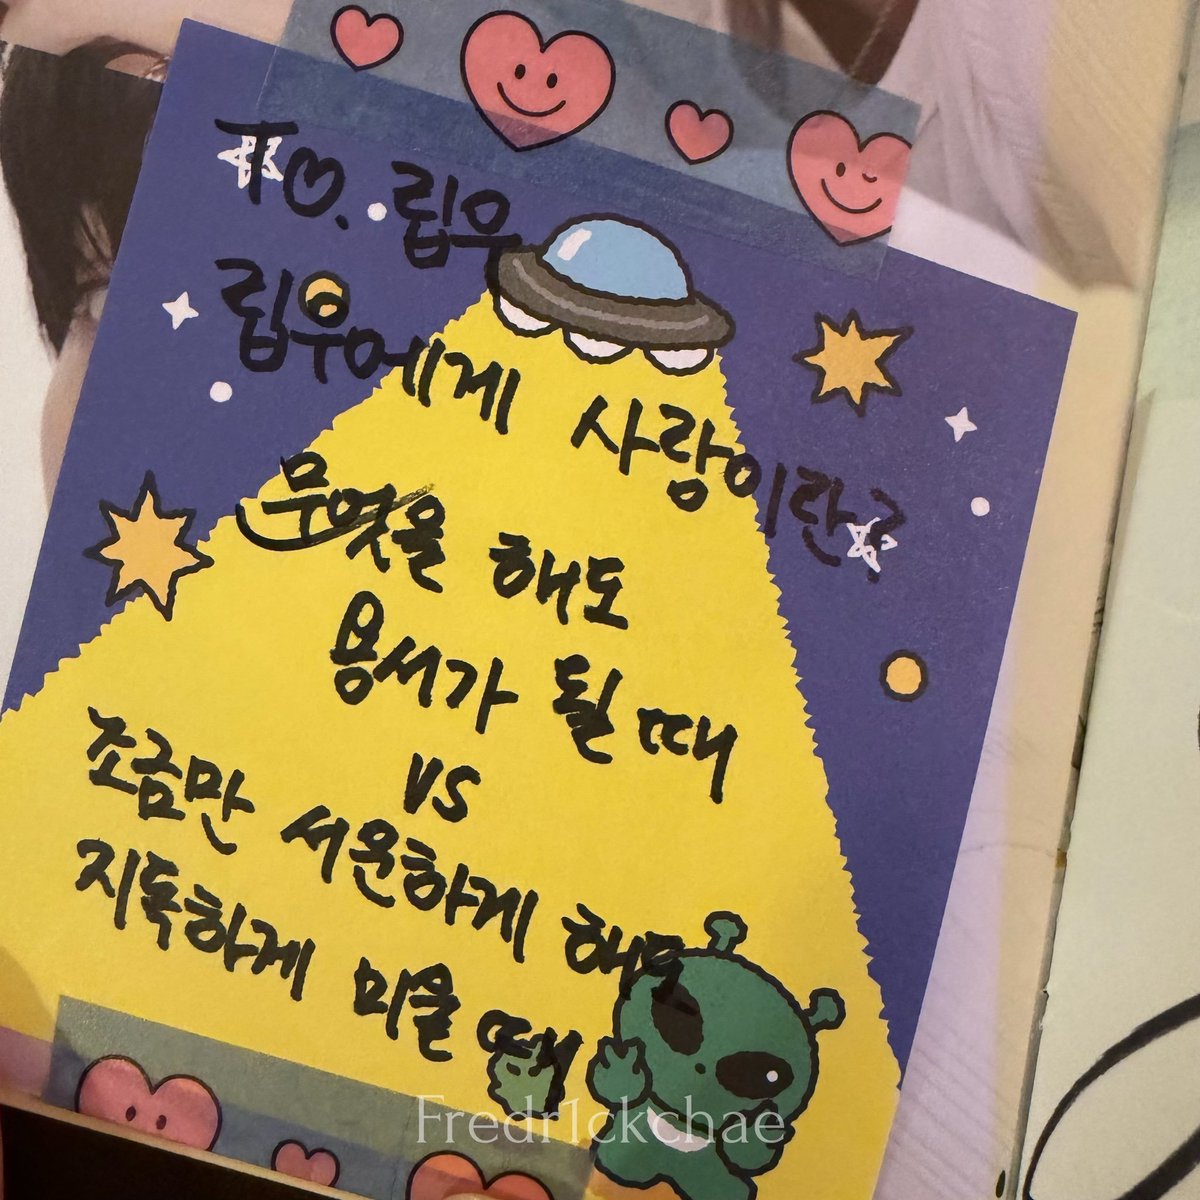 To. 립우
립우에게 사랑이란?
무엇을 해도
용서가 될 때
vs
조금만 서운하게 해도
지독하게 미울 때
Fredr1ckchae